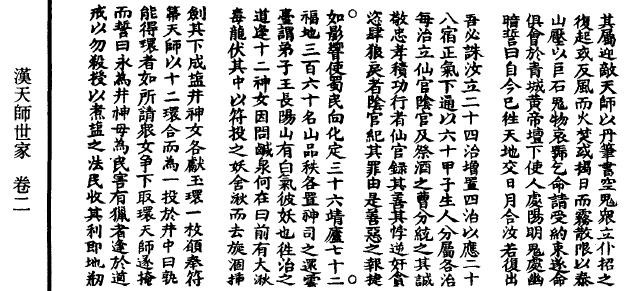 其屬迎敵天師以丹筆書空鬼衆立仆招之
復起或反風而火焚或揭日而霧散限以泰
山壓以巨石鬼物哀號乞命請受約束遂命
俱會於青城黃帝壇下使人處陽明鬼處幽
暗誓曰自今已徃天地交日月合汝若復出
吾必誅汝立二十四治增置四治以應二十
八宿正氣下通以六十甲子生人分屬各治
每治立仙官陰官及祭酒之曹分統之其誠
敬忠孝積功行者仙官錄其善其悖逆奸貪
恣肆狼戾者陰官紀其罪由是善惡之報捷
如影響使蜀民向化定三十六靖廬七十二
福地三百六十名山品秩各置神司之還雲
臺謂弟子王長陽山有白氣彼妖也徃治之
道逢十二神女因問鹹泉何在曰前有大湫
毒龍伏其中以符投之妖舍湫而去旋涸揷
劍其下成鹽井神女各獻玉環一枚願奉符
箒天師以十二環合而為一投於井中曰孰
能得環者如所請衆女爭下取環天師遂掩
而誓曰永為井神毋為民害有獵者逢於道
戒以勿殺授以煮鹽之法民收其利即地刱
漢天師世家 卷二